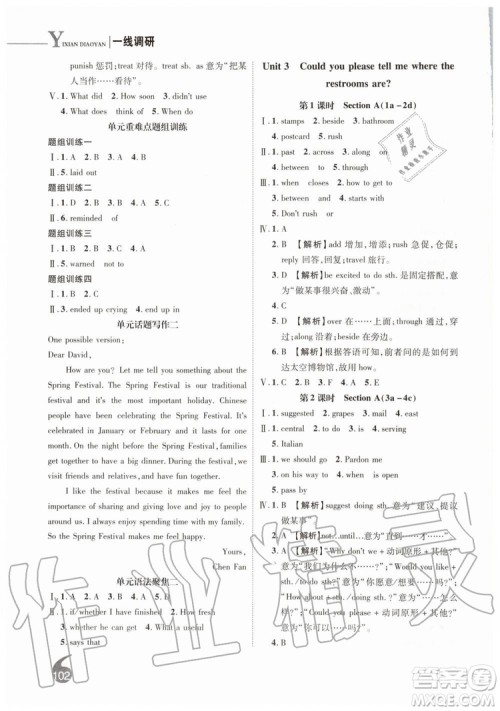 YIXIAN DIAOYAN 一线调研
punish 惩罚;treat 对待。treat sb. as 意为“把某
人当作……看待”。
Ⅴ. 1. What did 2. How soon 3. didn't use
4. What does think of 5. When do
单元重难点题组训练
题组训练一
Ⅰ. 1. A 2. B 3. B 4. A
Ⅱ. 5. laid out
题组训练二
Ⅰ. 1. A 2. D 3. B 4. C 5. B
Ⅱ. 6. reminded of
题组训练三
Ⅰ. 1. A 2. B 3. C 4. A
Ⅱ. 5. warned not to
题组训练四
Ⅰ. 1. C 2. B 3. A
Ⅱ. 4. ended up crying 5. end up in
单元话题写作二
One possible version:
Dear David,
How are you? Let me tell you something about the
Spring Festival. The Spring Festival is our traditional
festival and it is the most important festival in China.
Chinese celebrate the Spring Festival in January or
February. Before the Spring Festival, we clean our houses.
On the night before the Spring Festival, families get
together and have a big dinner. During the Spring
Festival, we often visit our friends and relatives and have
fun.
I like the festival because I can get together with my
family and I can get lucky money from my parents and
relatives. So the Spring Festival makes me feel happy.
Yours,
Chen Fan
单元语法聚焦二
Ⅰ. 1. B 2. A 3. C 4. B 5. A
Ⅱ. 1. if whether I have finished 2. How fresh
3. whether he can 4. What a useful
5. says that
102
Unit 3 Could you please tell me where the
restrooms are?
第 1 课时 Section A (1a~2d)
Ⅰ. 1. stamps 2. beside 3. bathroom
4. postcard 5. rush
Ⅱ. 1. on 2. to 3. past 4. along
5. between 6. to
Ⅲ. 1. when closes 2. how to get to
3. between and 4. started with
5. Don't rush
Ⅳ. 1. A
2. B 【解析】add 增加,增添;rush 急促,仓促;
reply 回答,回复;travel 旅行。
3. D 【解析】be excited to do sth. 意为
“做某事很兴奋、激动”。
4. C
5. D 【解析】across 穿过;through 穿过,
透过;towards 朝着;beside 在旁边。
6. B 【解析】根据答语可知,前者询问如何到
达太空博物馆,故选 B。
Ⅴ. 1. C 2. A 3. F 4. D 5. B
第 2 课时 Section A (3a~4c)
Ⅰ. 1. suggested 2. grapes 3. mail 4. central
5. Italian
Ⅲ. 1. we should go 2. Pardon me
3. on his way 4. depends on
5. pass by
Ⅳ. 1. B 【解析】suggest doing sth. 意为“建议,提议
做某事”。
2. A 【解析】not...until...意为“直到……才……”。
3. A 【解析】“Why don't we + 动词原形 + 其他?”
意为“我们为什么不……呢?”;“Would you like +
sth./to do sth.?”意为“你想要/想做……吗?”;
“How about + sth./doing sth.?”意为“……怎
么样?”;“Could you please + 动词原形 + 其
他?”意为“请你……好吗?”
作业精灵